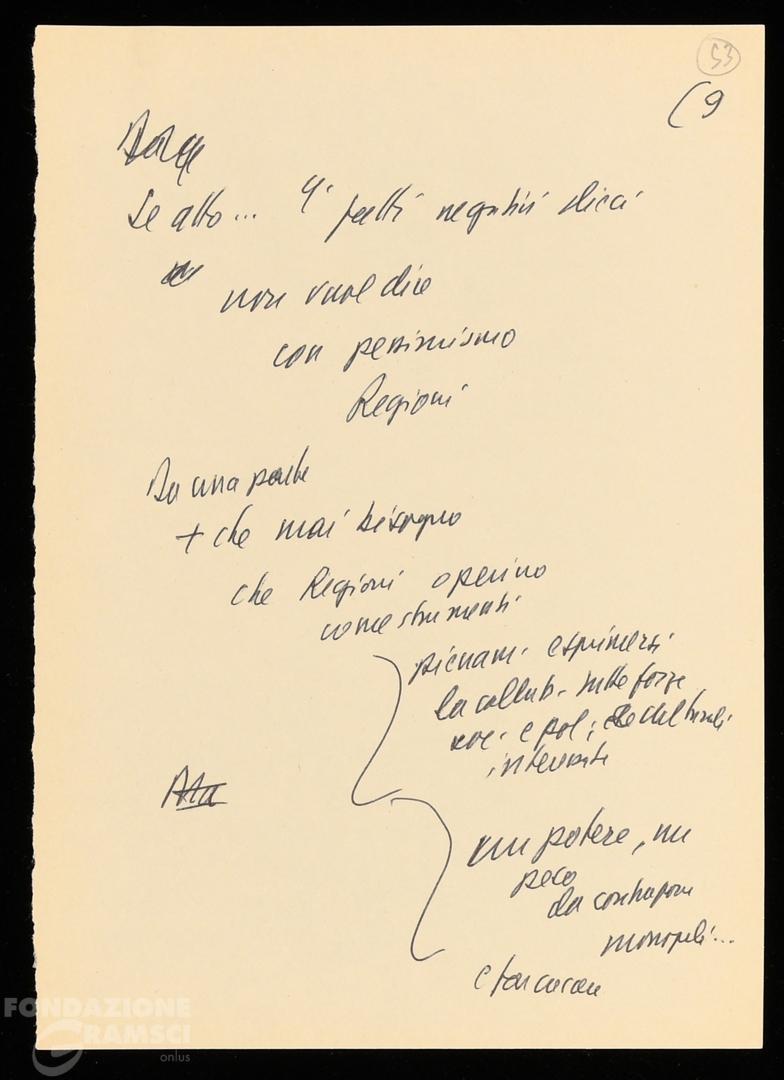 53
(9
Se atto... 4 fatti negativi
non vuol dire
con pessimismo
Regioni
Da una parte
+ che mai bisogno
che Regioni operino
come strumenti
pienam. esprimersi
la collab. tutte forze
soc. e pol., culturali
interessate
un potere, un
peso
da contrapporre
monopoli...
e far
FONDAZIONE
GRAMSCI
onlus